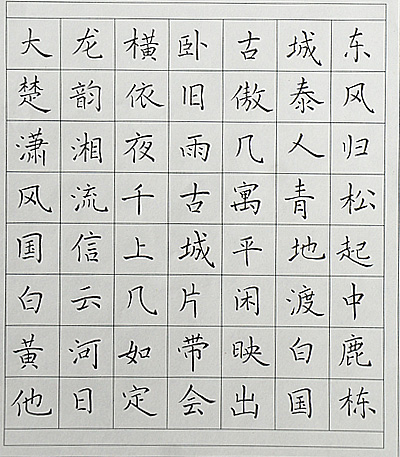 大龙横卧古城东
楚韵依旧傲泰风
潇湘夜雨几人归
风流千古寓青松
国信上城平地起
白云几片闲渡中
黄河如带映白鹿
他日定会出国栋